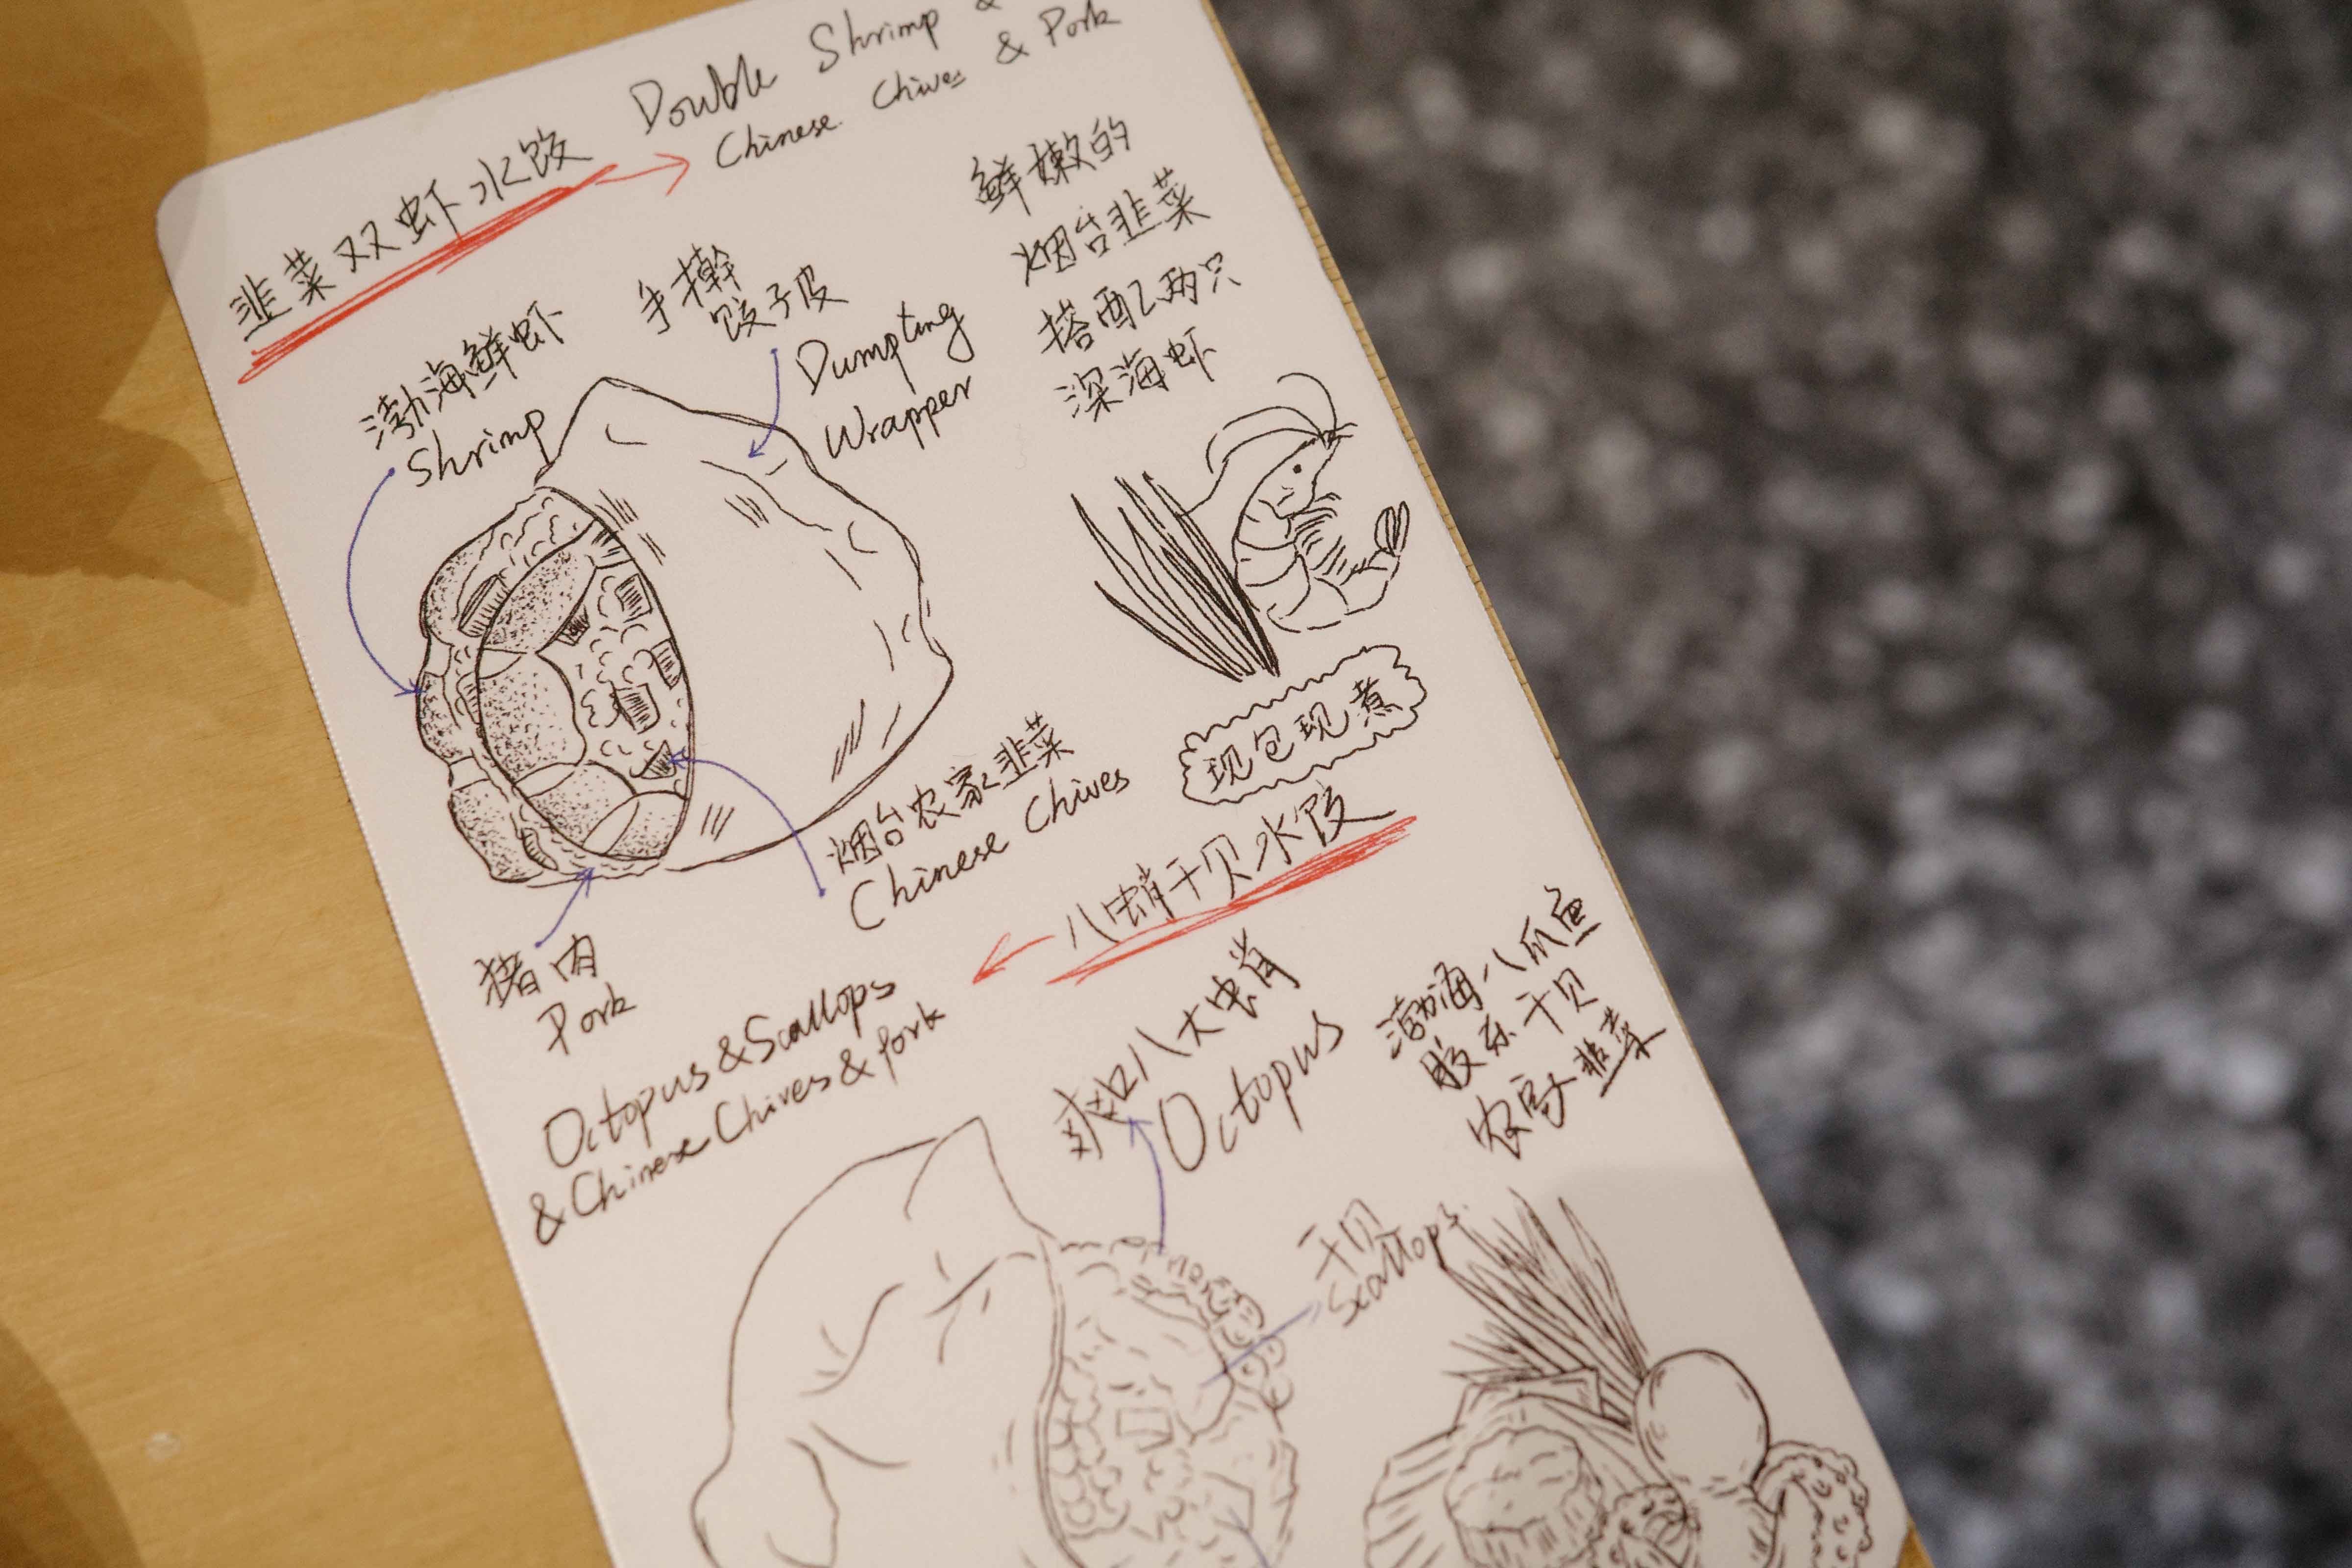 韭菜双虾水饺
Double Shrimp &
Chinese Chives & Pork
鲜嫩的
烟台韭菜
搭配两只
深海虾
手擀
饺子皮
Dumpting
Wrapper
渤海鲜虾
Shrimp
现包现煮
烟台农家韭菜
Chinese Chives
猪肉
Pork
八蛸干贝水饺
Octopus & Scallops
& Chinese Chives & Pork
爽口八大蛸
Octopus
渤海八爪鱼
胶东干贝
农家韭菜
干贝
Scallops.